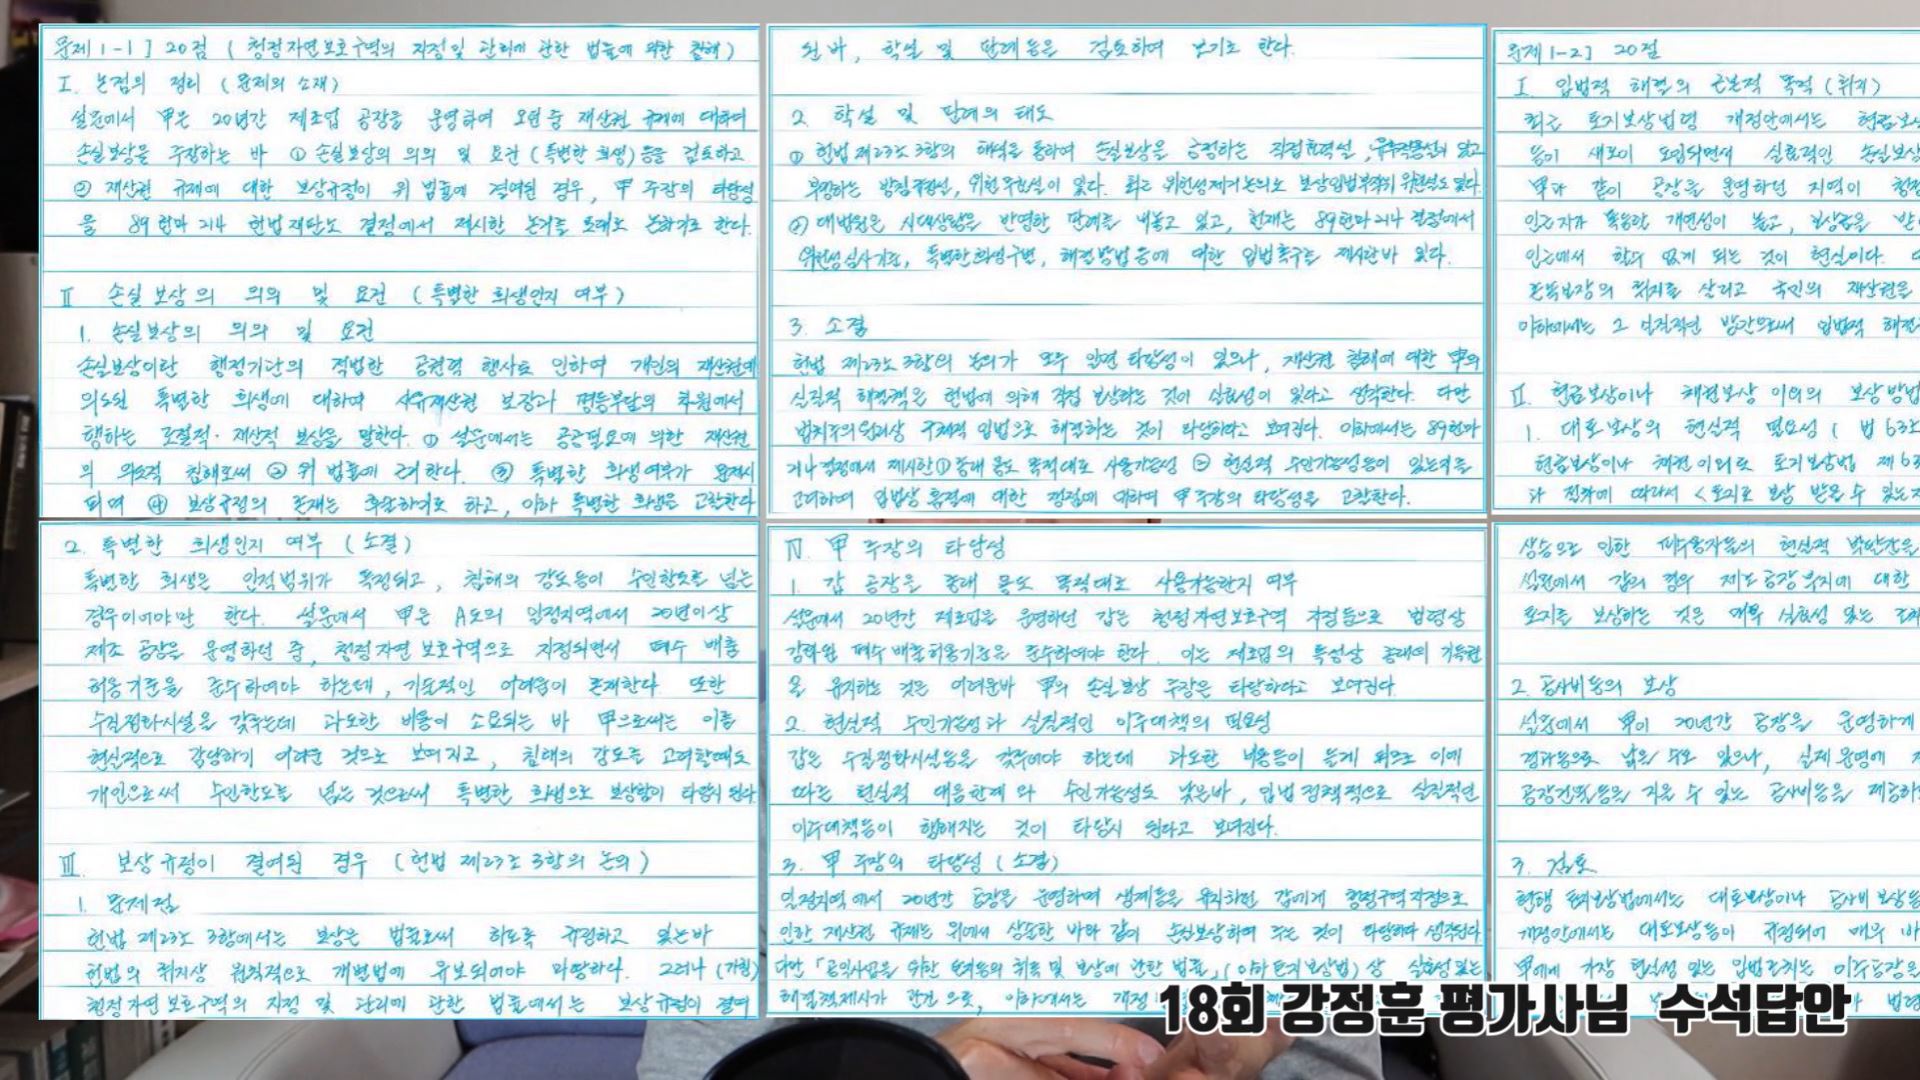 문제 1-1] 20점 (청정자연보호구역의 지정 및 관리에 관한 법률에 의한 침해)
I. 논점의 정리 (문제의 소재)
설문에서 甲은 20년간 제조업 공장을 운영하여 오던 중 재산권 규제에 대하여
손실보상을 주장하는 바 ① 손실보상의 의의 및 요건 (특별한 희생) 등을 검토하고
② 재산권 규제에 대한 보상규정이 위 법률에 결여된 경우, 甲 주장의 타당성
을 89헌마214 헌법재판소 결정에서 제시한 논거를 토대로 논하기로 한다.
II 손실보상의 의의 및 요건 (특별한 희생인지 여부)
1. 손실보상의 의의 및 요건
손실보상이란 행정기관의 적법한 공권력 행사로 인하여 개인의 재산권에
의도된 특별한 희생에 대하여 사유재산권 보장과 평등부담의 차원에서
행하는 조절적·재산적 보상을 말한다. ① 설문에서는 공공필요에 의한 재산권
의 의도적 침해로써 ② 위 법률에 근거한다. ③ 특별한 희생여부가 문제시
되며 ④ 보상규정의 존재는 후술하기로 하고, 이하 특별한 희생을 고찰한다
2. 특별한 희생인지 여부 (소결)
특별한 희생은 인적범위가 특정되고, 침해의 강도등이 수인한도를 넘는
경우이어야만 한다. 설문에서 甲은 A도의 일정지역에서 20년이상
제조 공장을 운영하던 중, 청정자연 보호구역으로 지정되면서 폐수 배출
허용기준을 준수하여야 하는데, 기술적인 어려움이 존재한다. 또한
수질정화시설을 갖추는데 과도한 비용이 소요되는 바 甲으로써는 이를
현실적으로 감당하기 어려운 것으로 보여지고, 침해의 강도를 고려할때도
개인으로써 수인한도를 넘는 것으로써 특별한 희생으로 보상함이 타당시 된다.
III. 보상규정이 결여된 경우 (헌법 제23조 3항의 논의)
1. 문제점
헌법 제23조 3항에서는 보상은 법률로써 하도록 규정하고 있는바
헌법의 취지상 원칙적으로 개별법에 유보되어야 마땅하다. 그러나 (가칭)
청정자연보호구역의 지정 및 관리에 관한 법률에서는 보상규정이 결여
된 바, 학설 및 판례등을 검토하여 보기로 한다.
2. 학설 및 판례의 태도
① 헌법 제23조 3항의 해석을 통하여 손실보상을 긍정하는 직접효력설, 유추적용설이 있고
부정하는 방침규정설, 위헌무효설이 있다. 최근 위헌성제거논의로 보상입법부작위 위헌설도 있다.
② 대법원은 시대상황을 반영한 판례를 내놓고 있고, 헌재는 89헌마214 결정에서
위헌성심사기준, 특별한희생구별, 해결방법등에 대한 입법촉구를 제시한바 있다.
3. 소결
헌법 제23조 3항의 논의가 모두 일면 타당성이 있으나, 재산권 침해에 대한 甲의
실질적 해결책은 헌법에 의해 직접 보상하는 것이 실효성이 있다고 생각한다. 다만
법치주의원리상 구체적 입법으로 해결하는 것이 타당하다고 보여진다. 이하에서는 89헌마
214결정에서 제시한 ① 종래 용도 목적대로 사용가능성 ② 현실적 수인가능성등이 있는지를
고려하여 입법상 흠결에 대한 쟁점에 대하여 甲 주장의 타당성을 고찰한다.
IV. 甲 주장의 타당성
1. 갑 공장을 종래 용도 목적대로 사용가능한지 여부
설문에서 20년간 제조업을 운영하던 갑은 청정자연보호구역 지정등으로 법령상
강화된 폐수 배출허용기준을 준수하여야 한다. 이는 제조업의 특성상 종래의 기득권
을 유지하는 것은 어려운바 甲의 손실보상 주장은 타당하다고 보여진다.
2. 현실적 수인가능성과 실질적인 이주대책의 필요성
갑은 수질정화시설등을 갖추어야 하는데 과도한 비용등이 들게 되므로 이에
따른 현실적 대응한계와 수인가능성도 낮은바, 입법정책적으로 실질적인
이주대책등이 행해지는 것이 타당시 된다고 보여진다.
3. 甲 주장의 타당성 (소결)
일정지역에서 20년간 공장을 운영하며 생계등을 유지하던 갑에게 청정구역지정으로
인한 재산권 규제는 위에서 상술한 바와 같이 손실보상하여 주는 것이 타당하다 생각된다.
다만 「공익사업을 위한 토지등의 취득 및 보상에 관한 법률」(이하 토지보상법)상 실효성있는
해결책제시가 관건으로, 이하에서는 개정
문제 1-2] 20점
I 입법적 해결의 근본적 목적 (취지)
최근 토지보상법령 개정안에서는 현금보상
등이 새로이 도입되면서 실효적인 손실보상
甲과 같이 공장을 운영하던 지역이 청정
인근지가 폭등할 개연성이 높고, 보상금을 받
인근에서 할수 없게 되는 것이 현실이다.
존속보장의 취지를 살리고 국민의 재산권을
이하에서는 그 실질적인 방안으로써 입법적 해결
II. 현금보상이나 채권보상 이외의 보상방법
1. 대토보상의 현실적 필요성 (법 63조
현금보상이나 채권이외로 토지보상법 제63
과 절차에 따라서 <토지로 보상 받을 수 있는
상승으로 인한 피수용자들의 현실적 박탈감을
설문에서 갑의 경우 제조공장부지에 대한
토지로 보상하는 것은 매우 실효성 있는
2. 공사비등의 보상
설문에서 甲이 20년간 공장을 운영하게
경과등으로 낡을 수도 있으나, 실제 운영에
공장건물등을 지을 수 있는 공사비등을 제공하
3. 검토
현행 토지보상법에서는 대토보상이나 공사비 보상등
개정안에서는 대토보상등이 규정되어 매우
甲에게 가장 현실성 있는 입법조치는 이주공장을
18회 강정훈 평가사님 수석답안